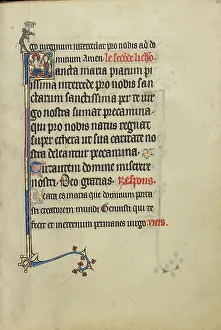 go virginum intercedat pro nobis ad do
minum Amen. le secunde lichon
Sancta maria piarum pi
issima intercede pro nobis san
ctarum sanctissima per te vir
go nostra sumat precamina
qui pro nobis natus regnat
super ethera ut sua caritate no
stra deleantur precamina.
Tu autem domine miserere
nostri. Deo gratias. Respons.
Beata es maria que dominum porta
sti creatorem mundi Genuisti qui
te fecit et in eternum permanes virgo. vers.